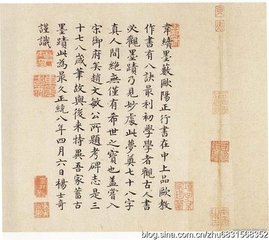 韋續墨藪歐陽正行書在中上品歐教
作書有八訣最利初學學者觀古人書
必觀墨蹟乃見妙處此夢奠七十八字
真人間絕無僅有希世之寶也蓋嘗入
宋御府矣趙文敏公所題考碑志是三
十七八歲筆故與後來特異吾家舊古
墨蹟此為最久正統八年四月六日楊士奇
謹識
blog.sina.com.cn/zhu6831568352